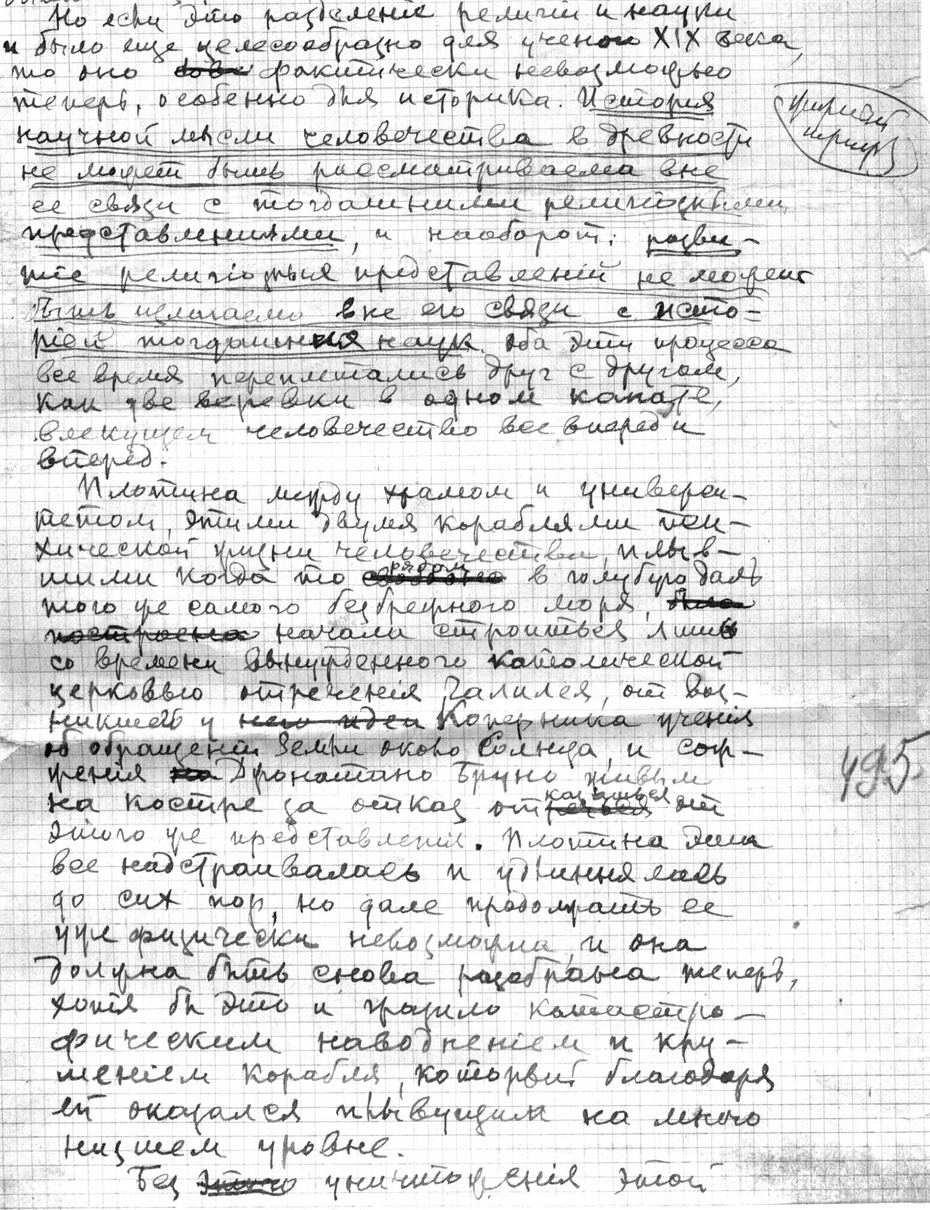 Но если это разделеніе религіи и науки
и было еще целесообразно для ученого XIX века,
то оно фактически невозможно
теперь, особенно для историка. Исторія
научной мысли человечества в древности
не может быть рассматриваема вне
ее связи с тогдашними религіозными
представленіями, и наоборот: разви-
тіе религіозных представленій не может
быть излагаемо вне его связи с исто-
ріей тогдашних наук. Оба эти процесса
все время переплетались друг с другом,
как две веревки в одном канате,
влекущем человечество все вперед и
вперед.
жирный
шрифт
Плотина между храмом и универси-
тетом, этими двумя кораблями пси-
хической жизни человечества, плыв-
шими когда то рядом в голубую даль
того же самого безбрежного моря,
начала строиться лишь
со времени вынужденного католической
церковью отреченія Галилея, от воз-
никшего у Коперника ученія
об обращеніи Земли около Солнца, и сож-
женія Джіордано Бруно живым
на костре за отказ отказаться от
этого же представленія. Плотина эта
все надстраивалась и удлиннялась
до сих пор, но дале продолжать ее
уже физически невозможно, и она
должна быть снова разобрана теперь,
хотя бы это и грозило катастро-
фическим наводненіем и кру-
шеніем корабля, который благодаря
ей оказался плывущим на много
низшем уровне.
495
Без уничтоженія этой